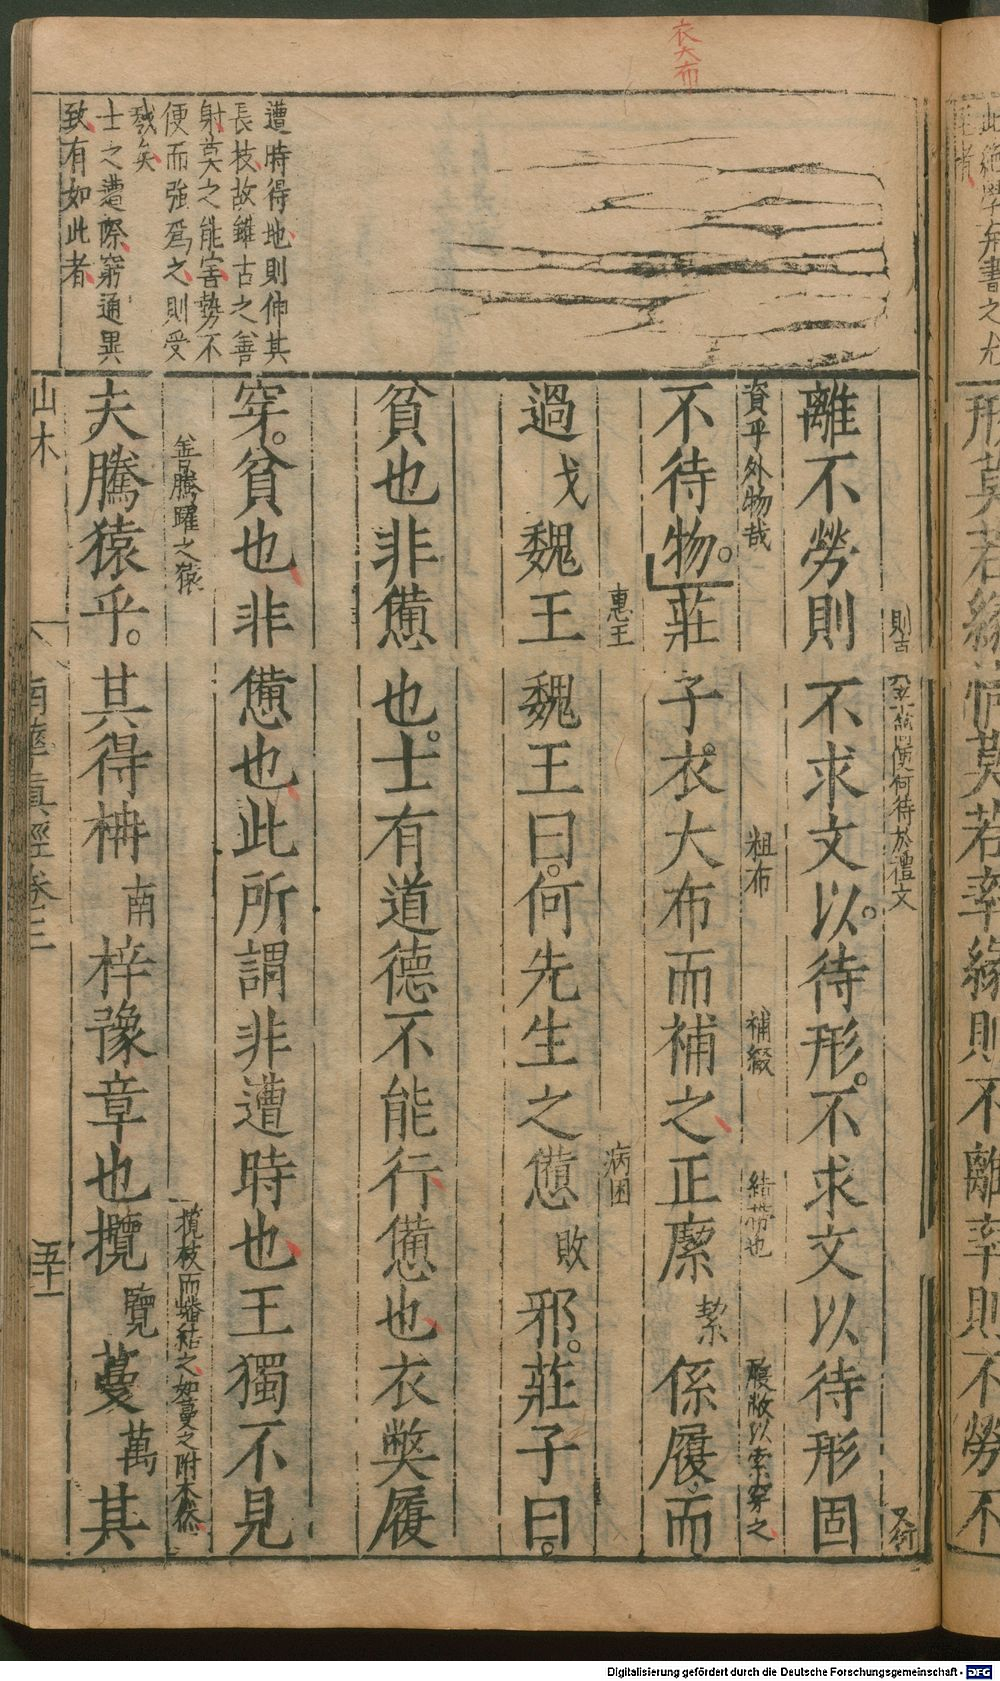 衣大布
遭時得地則伸其
長枝故雖古之善
射莫之能害勢不
便而強爲之則受
戮矣
士之遭際窮通異
致有如此者
離不勞則不求文以待形不求文以待形固
資乎外物哉
粗布
補綴
結帶也
履敝以索穿之
不待物。莊子衣大布而補之正緳 絜 係履而
惠王
病困
過 戈 魏王魏王曰。何先生之憊 敗 邪。莊子曰。
貧也非憊也。士有道德不能行憊也衣獘履
穿。貧也非憊也此所謂非遭時也王獨不見
善騰躍之猿
攬枝而蟠結之如蔓之附木然
夫騰猿乎。其得柟 南 梓豫章也攬 覽 蔓 萬 其
山木
南華眞經卷三
五十一
形莫若緣情莫若率緣則不離率則不勞不
Digitalisierung gefördert durch die Deutsche Forschungsgemeinschaft - DFG